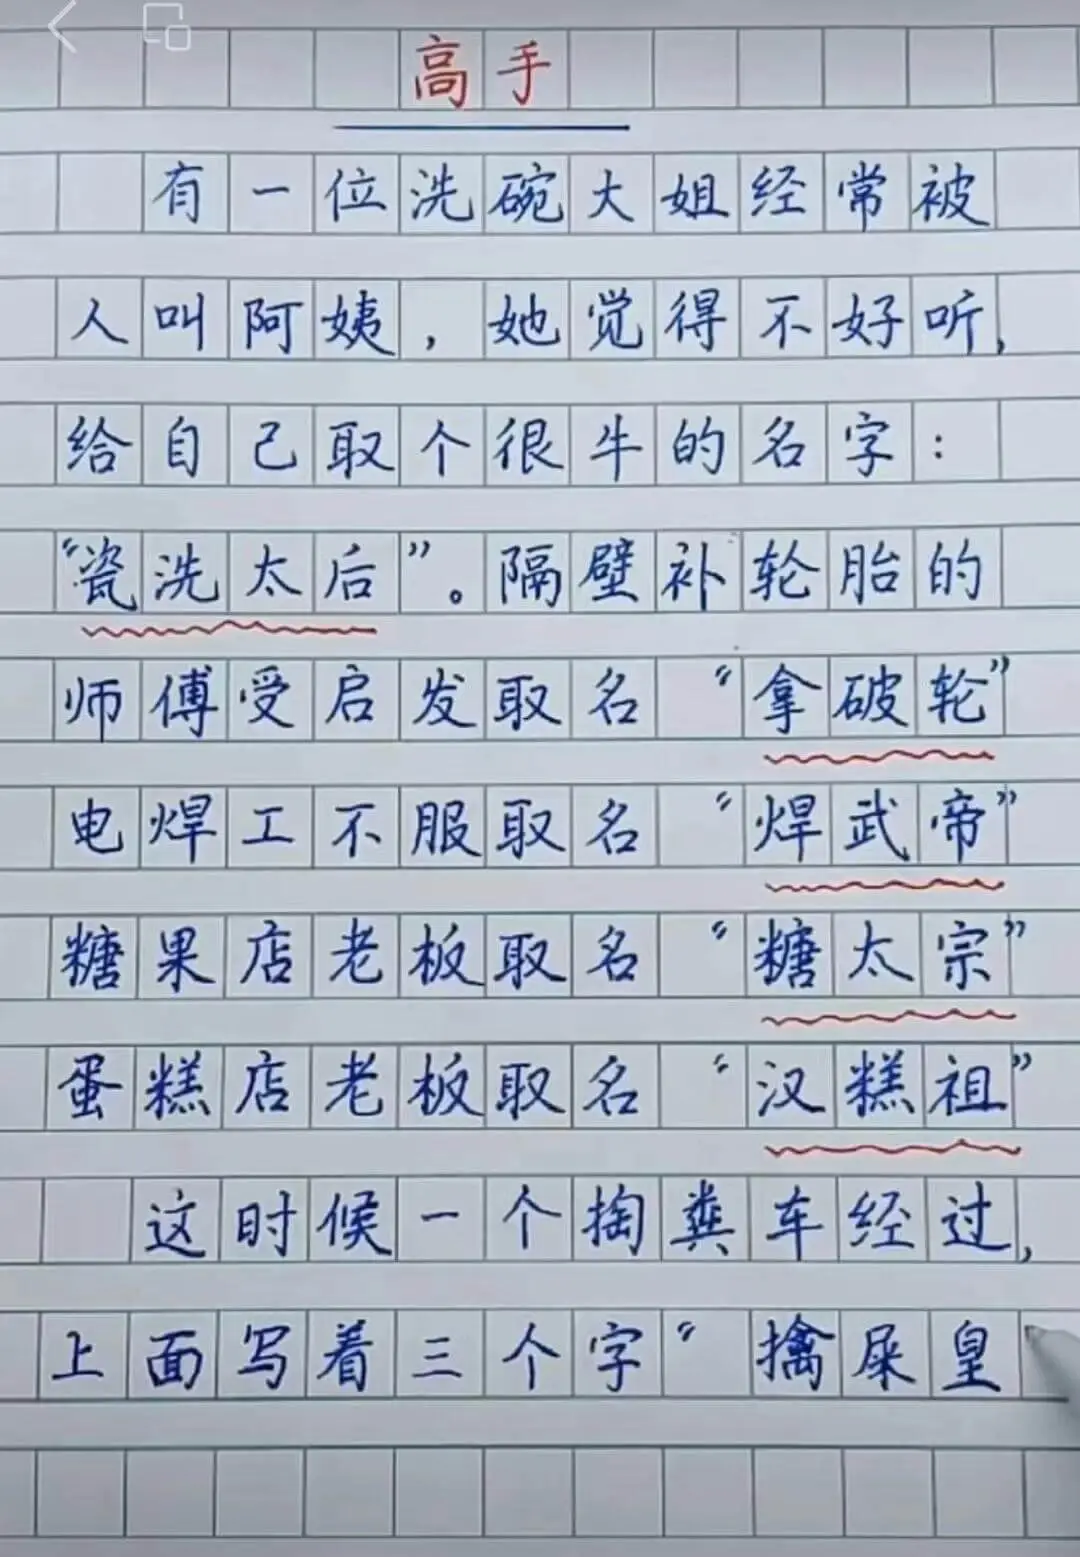 高手
有一位洗碗大姐经常被
人叫阿姨，她觉得不好听，
给自己取个很牛的名字：
“瓷洗太后”。隔壁补轮胎的
师傅受启发取名“拿破轮”
电焊工不服取名“焊武帝”
糖果店老板取名“糖太宗”
蛋糕店老板取名“汉糕祖”
这时候一个掏粪车经过，
上面写着三个字“擒屎皇